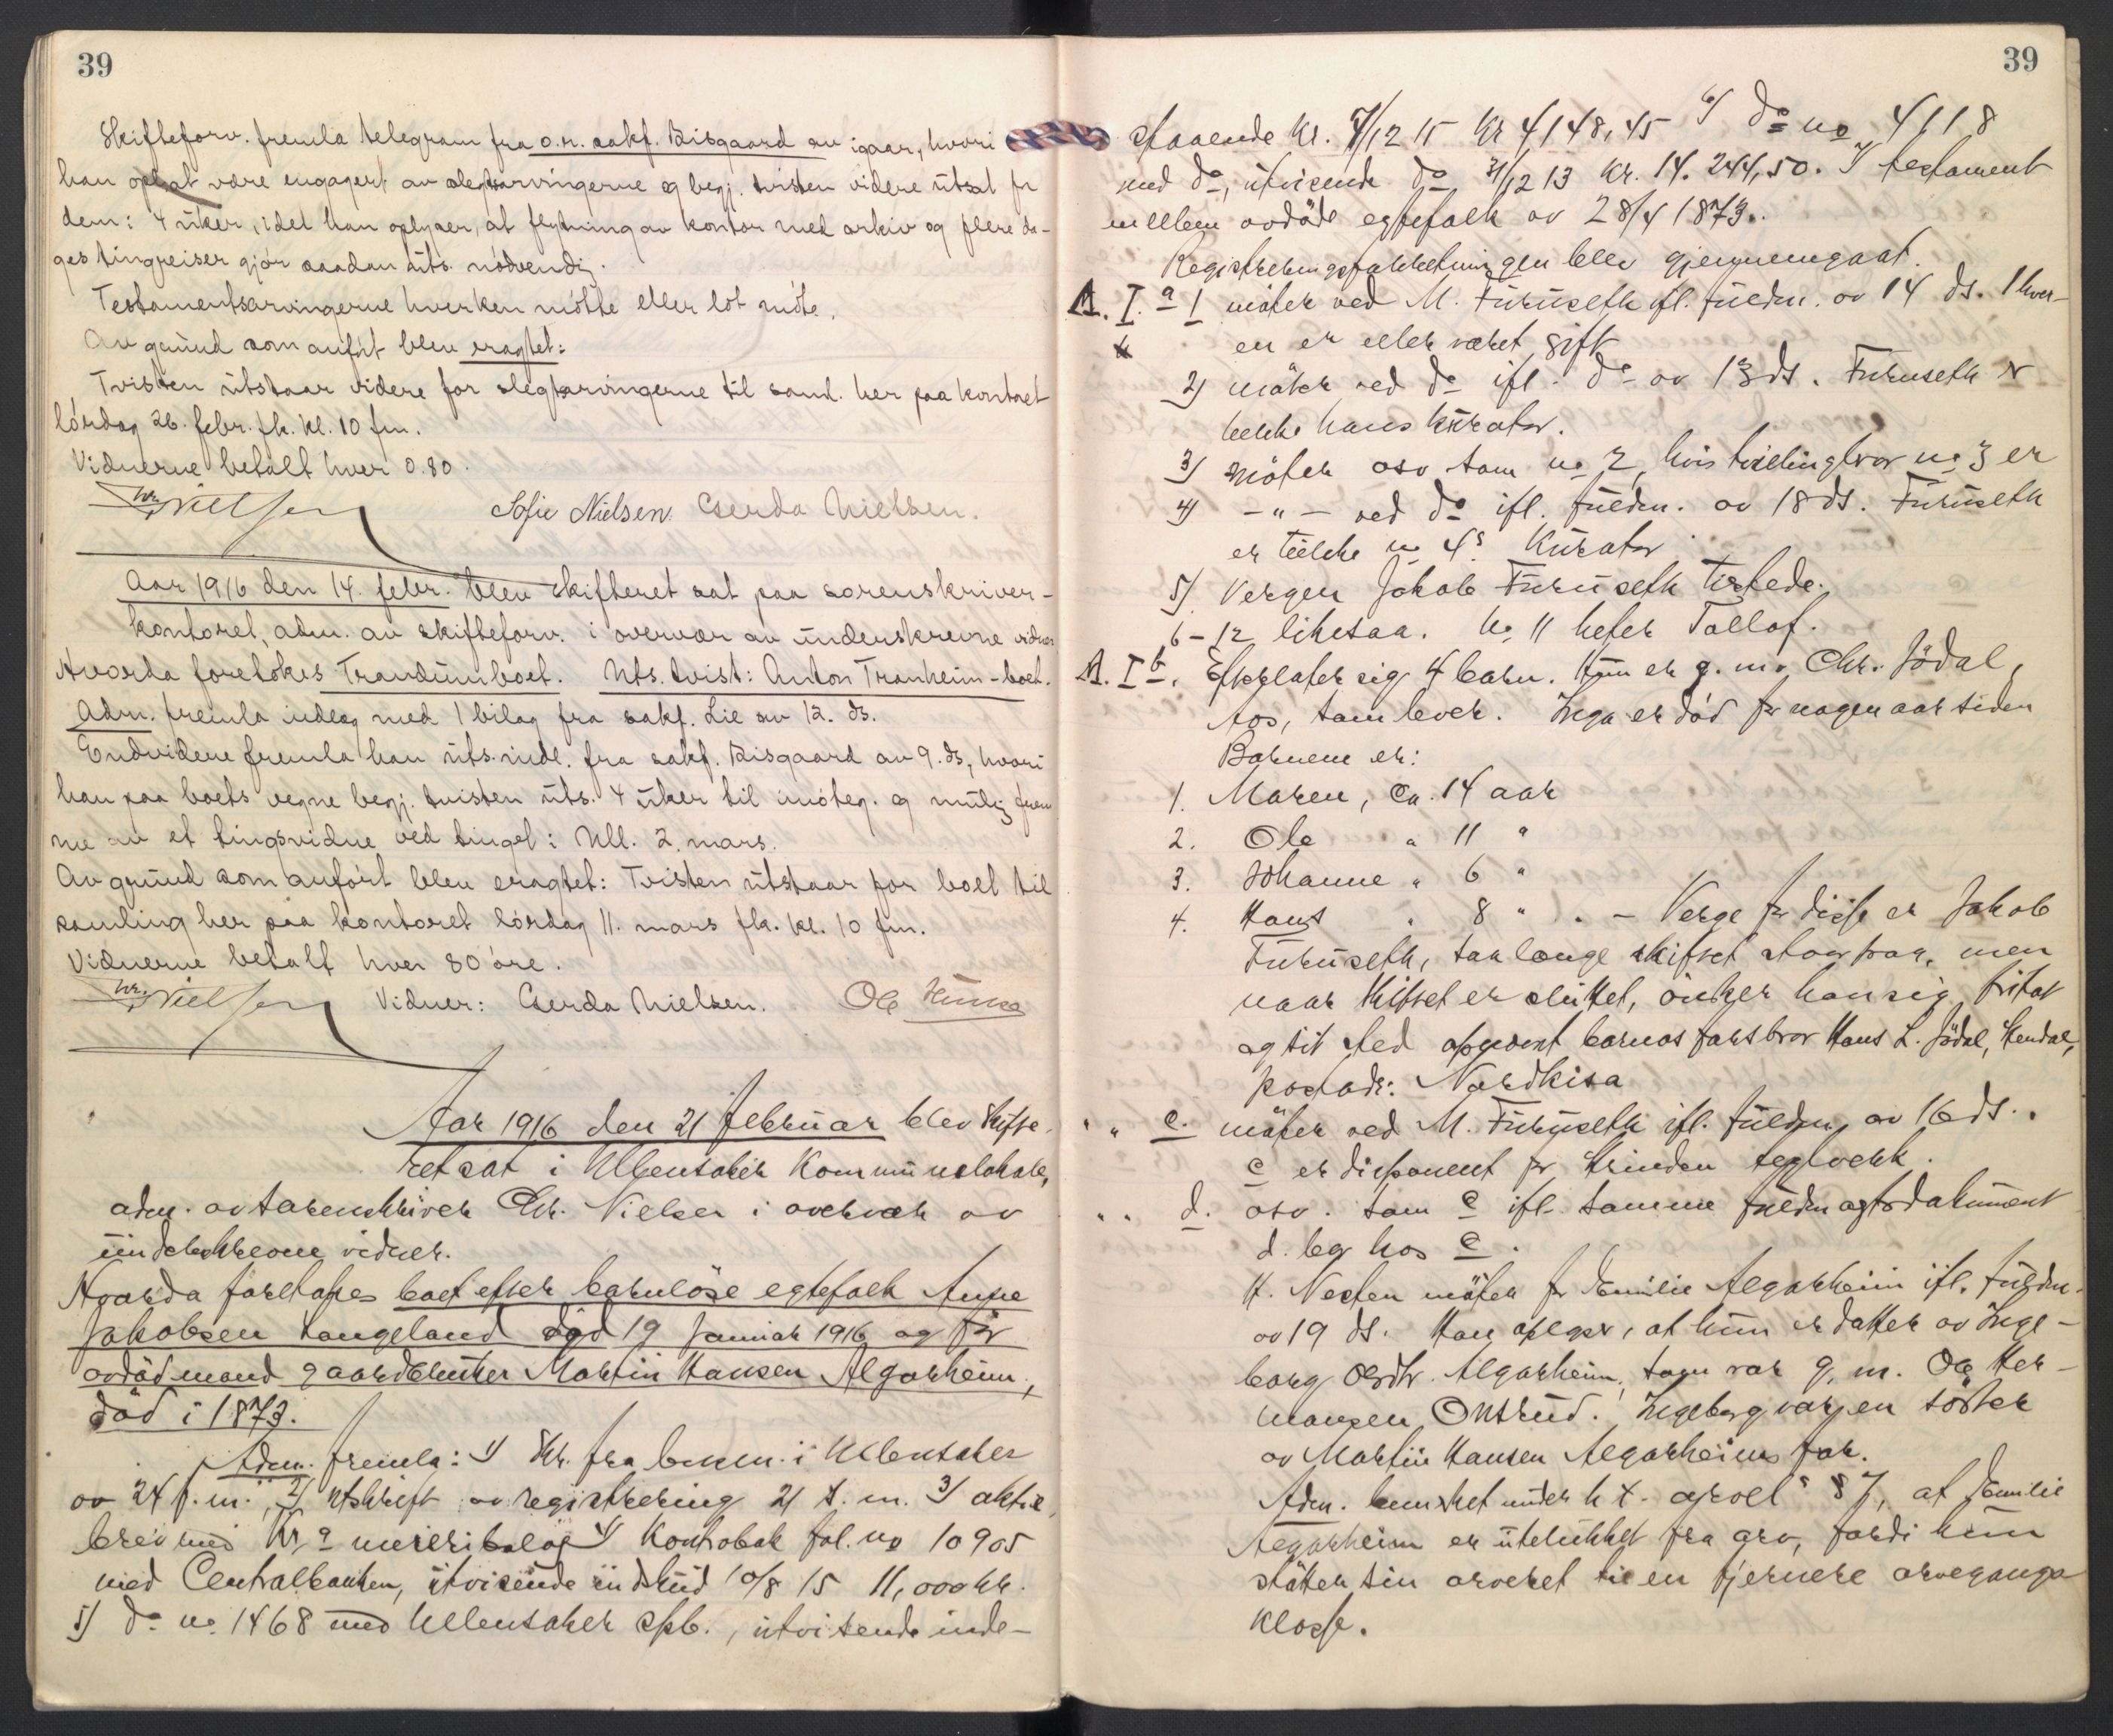 39
Skifteforv. fremla telegram fra o.r. sakf. Bisgaard av igaar, hvori
han opgat være engagert av slegtsarvingerne og begj. tvisten videre utsat for
dem: 4 uker, idet han oplyser, at flytning av kontor med arkiv og flere da-
ges tingreiser gjør saadan uts. nødvendig.
Testamentsarvingerne hverken møtte eller lot møte.
Av grund som anført blev eragtet:
Tvisten utstaar videre for slegtsarvingerne til saml. her paa kontoret
lørdag 26. febr. fk. kl. 10 fm.
Vidnerne betalt hver 0.80.
Chr. Nielsen Sofie Nielsen. Gerda Nielsen.
Aar 1916 den 14. febr. blev skifteret sat paa sorenskriver-
kontoret, adm. av skifteforv. i overvær av underskrevne vidner
Hvorda foretokes Trandumboet. Uts. tvist: Anton Tranheim-boet.
Adm. fremla indlæg med 1 bilag fra sakf. Lie av 12. ds.
Endvidere fremla han uts. indl. fra sakf. Bisgaard av 9. ds, hvori
han paa boets vegne begj. tvisten uts. 4 uker til imøteg. og mulig frem
me av et tingsvidne ved tinget i Ull. 2. mars.
Av grund som anført blev eragtet: Tvisten utstaar for boet til
samling her paa kontoret lørdag 11. mars fk. kl. 10 fm.
Vidnerne betalt hver 80 øre.
Chr. Nielsen Vidner: Gerda Nielsen. Ole
Aar 1916 den 21 februar blev skifte-
ret sat i Ullensaker Kommunelokale,
adm. av sorenskriver Chr. Nielsen i overvær av
underskrevne vidner.
Hvorda foretokes boet efter barnløse egtefolk Anne
Jakobsen Haugeland død 19 januar 1916 og før
avdød mand gaardbruker Martin Hansen Algarheim,
død i 1873.
Adm. fremla: 1) Skr. fra lensm. i Ullensaker
av 24 f.m., 2) utskrift av registrering 21 s.m. 3) aktie
brev med Kr 9 meieribolag 4) Kontrabok fol. no 10905
med Centralbanken, utvisende indskud 10/8 15 11,000 kr.
5) do no. 1468 med Ullensaker spb., utvisende inde-
39
staaende kl. 31/12 15 kr 4148,45 6) do no 4118
med do, utvisende do 31/12 13 kr. 14.244,50. 7) testament
mellem avdøde egtefolk av 28/4 1873.
Registreringsforretningen blev gjennemgaat.
A. I. a 1 møter ved M. Furuseth ifl. fuldm. av 14 ds. 1 hver-
en er eller været gift
2) møter ved do ifl. do av 13 ds. Furuseth er
hans kurator.
3) møter osv som no 2, hvis tvillingbror no 3 er
4) -"- ved do ifl. fuldm. av 18 ds. Furuseth
er no 4s kurator
5) Vergen Jakob Furuseth tilstede.
6-12 likesaa. No 11 heter Tollof.
A. I b. Efterlater sig 4 barn. Hun er g. m. Chr. Jødal,
Aos, som lever. Inga er død for nogen aar siden
Barnene er:
1. Maren, ca. 14 aar
2. Ole " 11 "
3. Johanne " 6 "
4. Hans " 8 " . - Verge for disse er Jakob
Furuseth, saa længe skiftet staar paa, men
naar skiftet er sluttet, ønsker han sig fritat
og sit sted opnævnt barnas farsbror Hans L. Jødal, Hendal,
postadr: Nordkisa
" " c. møter ved M. Furuseth ifl. fuldm. av 16 ds.
c er disponent for Strinden teglverk.
" " d. osv. som c ifl. samme fuldmagtsdokument
d. bor hos c.
H. Nesten møter for Emilie Algarheim ifl. fuldm.
av 19 ds. Han oplyser, at hun er datter av Inge-
borg Olsdtr. Algarheim, som var g. m. Ole Her-
mansen Onsrud. Ingeborg var en søster
av Martin Hansen Algarheims far.
Adm. bemerket under h t. arvel's § 7, at Emilie
Algarheim er utelukket fra arv, fordi hun
støtter sin arveret til en fjernere arvegangs
klasse.